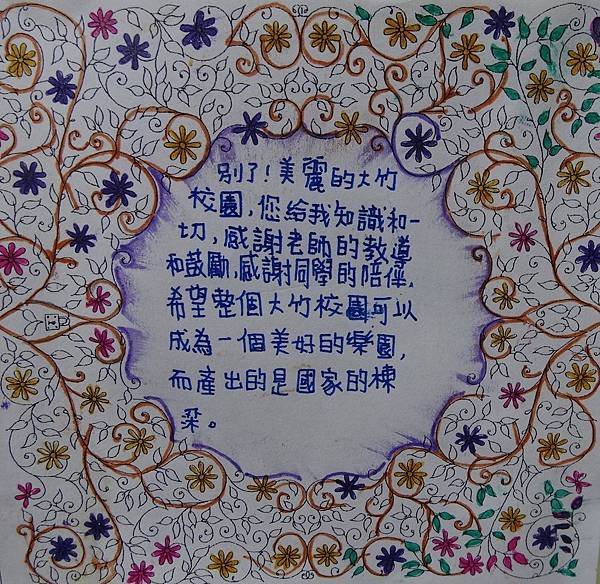 別了！美麗的大竹
校園，您給我知識和一
切，感謝老師的教導
和鼓勵，感謝同學的陪伴，
希望整個大竹校園可以
成為一個美好的樂園，
而產出的是國家的棟
梁。